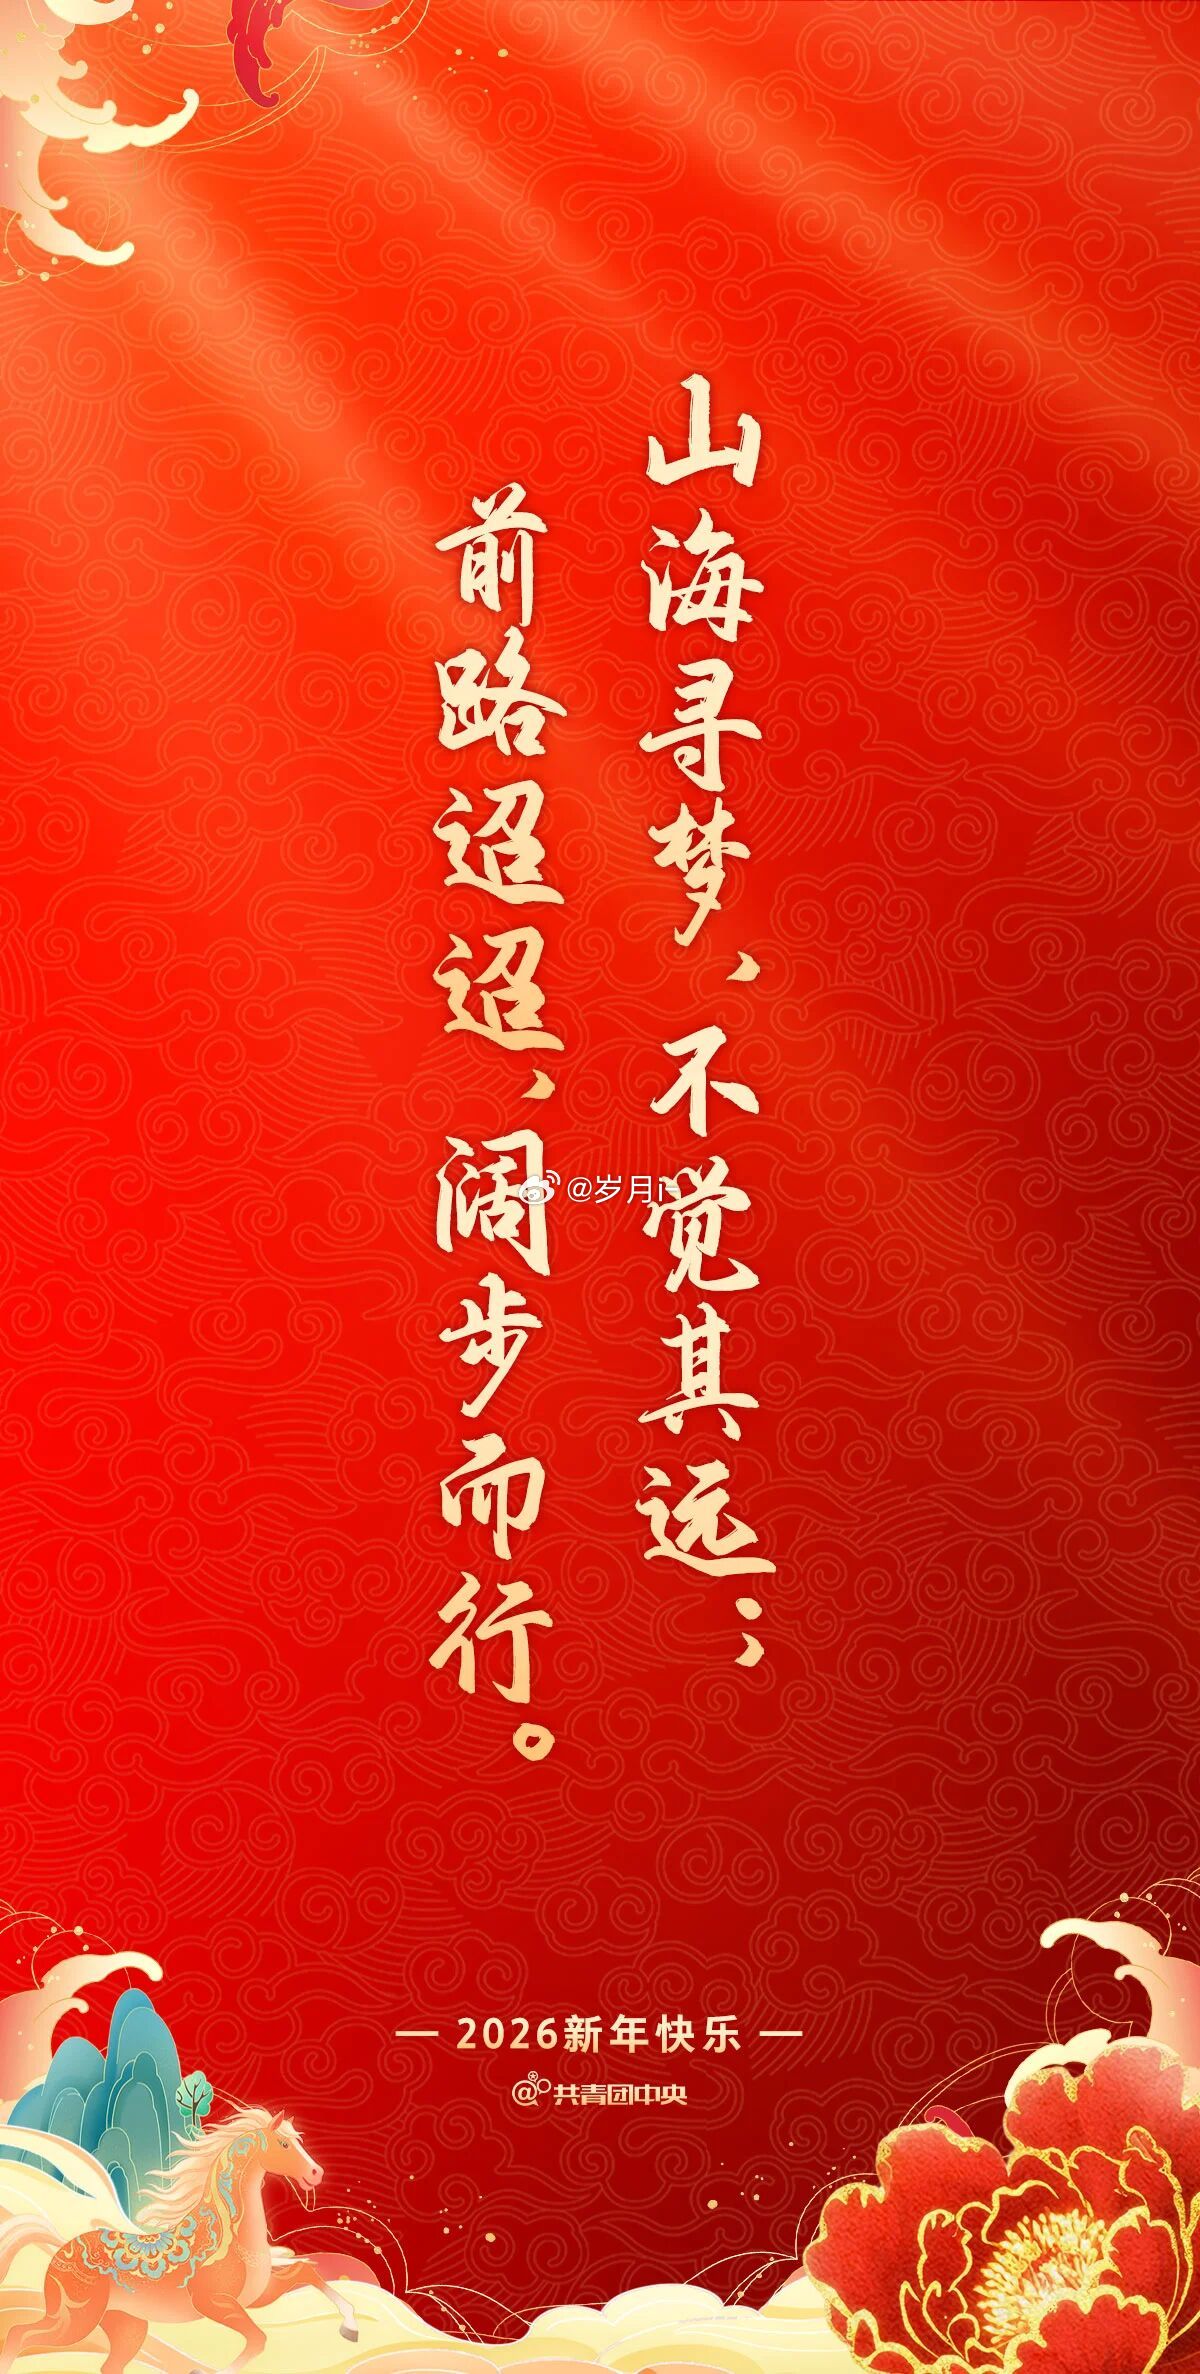 山海寻梦，不觉其远；
前路迢迢，阔步而行。
@岁月i
— 2026新年快乐 —
@共青团中央